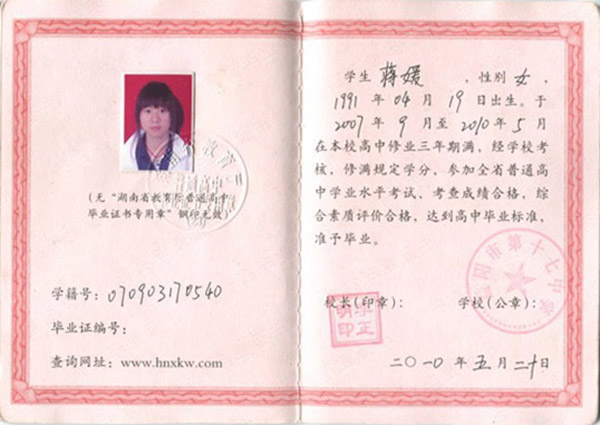 (无“湖南省教育厅普通高中
毕业证书专用章”钢印无效)
学籍号：070903170540
毕业证编号：
查询网址：www.hnxkw.com
学生 蒋媛 ，性别 女，
1991 年 04 月 19 日出生。于
2007 年 9 月至 2010 年 5 月
在本校高中修业三年期满，经学校考
核，修满规定学分，参加全省普通高
中学业水平考试、考查成绩合格，综
合素质评价合格，达到高中毕业标准，
准予毕业。
阳市第十七中学
校长(印章)：
李正明印
学校(公章)：
二〇一〇年五月二十日